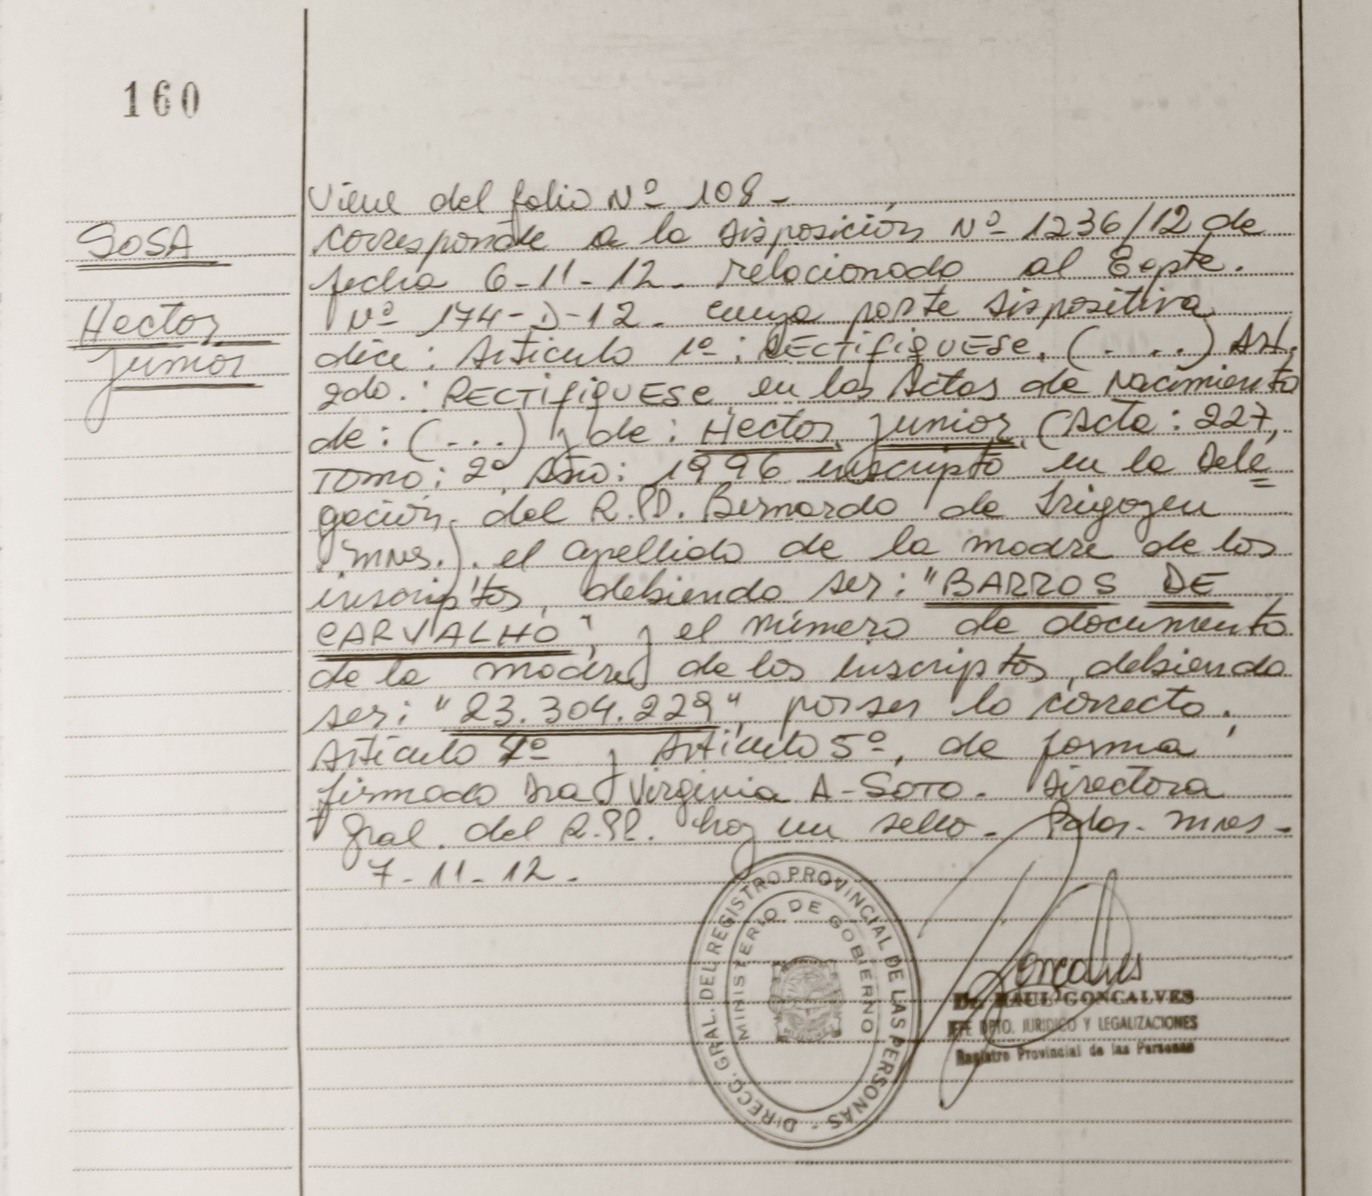 160
Viene del folio Nº 108-
SOSA
Hector
Junior
Corresponde a la disposición Nº 1236/12 de
fecha 6-11-12. relacionado al Expte.
Nº 174-D-12. cuya parte dispositiva
dice: Artículo 1º: RECTIFIQUESE. (...) Art.
2do.: RECTIFIQUESE en las Actas de nacimiento
de: (...) y de: Hector Junior (Acta: 227,
Tomo: 2º, Año: 1996 inscripto en la Dele
gación del R.P. Bernardo de Irigoyen
Mnes.). el apellido de la madre de los
inscriptos, debiendo ser: "BARROS DE
CARVALHO", y el número de documento
de la madre de los inscriptos, debiendo
ser: "23.304.229", por ser lo correcto.
Artículo 4º y Artículo 5º, de forma
firmado Dra Virginia A-Soto. Directora
Gral. del R.P. hay un sello- Pdas. Mnes-
7-11-12.
DIRECC. GRAL. DEL REGISTRO PROVINCIAL DE LAS PERSONAS
MINISTERIO DE GOBIERNO
Dr. RAUL GONCALVES
JEFE DPTO. JURIDICO Y LEGALIZACIONES
Registro Provincial de las Personas